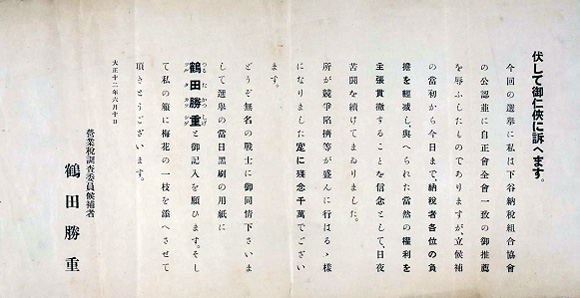 伏して御仁俠に訴へます。
今回の選擧に私は下谷納稅組合協會
の公認並に自正會全會一致の御推薦
を辱ふしたものでありますが、立候補
の當初から今日まで、納稅者各位の負
擔を輕減し、與へられた當然の權利を
主張貫徹することを信念として、日夜
苦鬪を續けてまゐりました。
所が競爭陷擠等が盛んに行はるゝ樣
になりました定に殘念千萬でござい
ます。
どうぞ無名の戰士に御同情下さいま
して選擧の當日黑刷の用紙に
鶴田勝重と御記入を願ひます。そし
つるたかつしげ
ツルタカツシゲ
て私の籠に梅花の一枝を添へさせて
頂きとうございます。
大正十二年六月十日
營業稅調查委員候補者
鶴田勝重